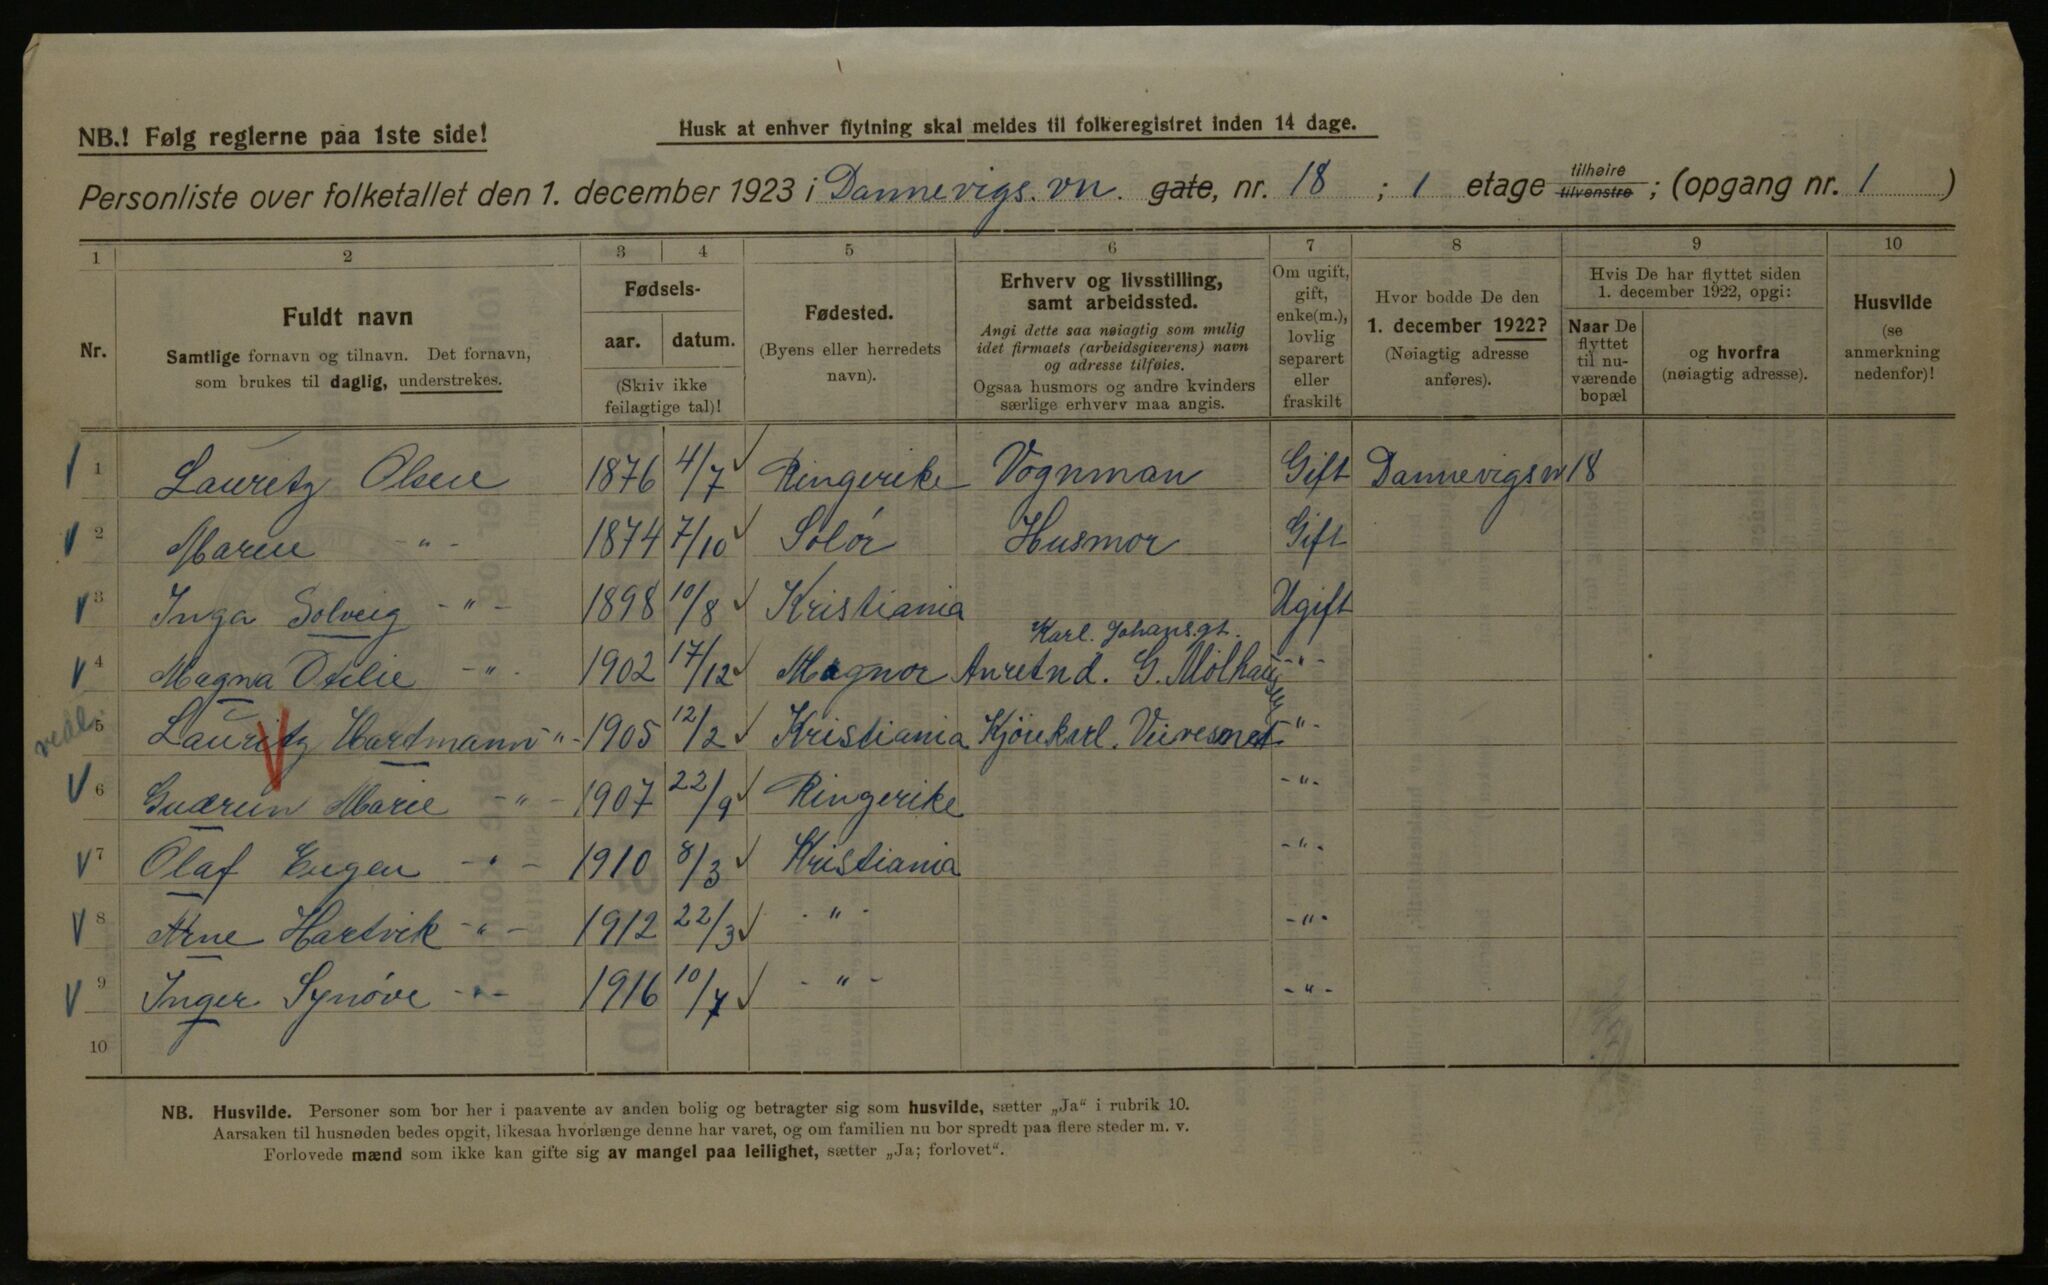 NB.! Følg reglerne paa 1ste side!
Husk at enhver flytning skal meldes til folkeregistret inden 14 dage.
Personliste over folketallet den 1. december 1923 i Dannevigs.vn. gate, nr. 18 ; 1 etage tilhøire tilvenstre ; (opgang nr. 1 )
1 2 3 4 5 6 7 8 9 10
Nr.
Fuldt navn
Samtlige fornavn og tilnavn. Det fornavn,
som brukes til daglig, understrekes.
Fødsels-
aar. datum.
(Skriv ikke
feilagtige tal)!
Fødested.
(Byens eller herredets
navn).
Erhverv og livsstilling,
samt arbeidssted.
Angi dette saa nøiagtig som mulig
idet firmaets (arbeidsgiverens) navn
og adresse tilføies.
Ogsaa husmors og andre kvinders
særlige erhverv maa angis.
Om ugift,
gift,
enke(m.),
lovlig
separert
eller
fraskilt
Hvor bodde De den
1. december 1922?
(Nøiagtig adresse
anføres).
Hvis De har flyttet siden
1. december 1922, opgi:
Naar De
flyttet
til nu-
værende
bopæl
og hvorfra
(nøiagtig adresse).
Husvilde
(se
anmerkning
nedenfor)!
1 Lauritz Olsen 1876 4/7 Ringerike Vognman Gift Dannevigsvn 18
2 Maren -"- 1874 7/10 Solør Husmor Gift
3 Inga Solveig -"- 1898 10/8 Kristiania Ugift
Karl. Johansgt.
4 Magna Otilie -"- 1902 17/12 Magnor G. Mølhau -"-
5 Lauritz Hartmann -"- 1905 12/2 Kristiania Kjørekarl. -"-
6 Gudrun Marie -"- 1907 22/9 Ringerike -"-
7 Olaf Eugen -"- 1910 8/3 Kristiania -"-
8 Arne Hartvik -"- 1912 22/3 -"- -"-
9 Inger Synøve -"- 1916 10/7 -"- -"-
10
NB. Husvilde. Personer som bor her i paavente av anden bolig og betragter sig som husvilde, sætter „Ja" i rubrik 10.
Aarsaken til husnøden bedes opgit, likesaa hvorlænge denne har varet, og om familien nu bor spredt paa flere steder m. v.
Forlovede mænd som ikke kan gifte sig av mangel paa leilighet, sætter „Ja; forlovet".